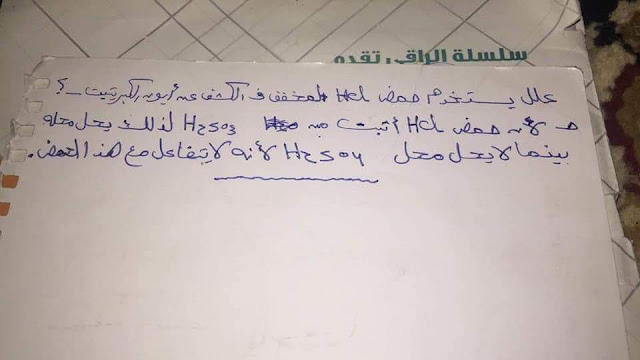 سلسلة الراقي تقدم
علل يستخدم حمض HCl المخفف فى الكشف عن أيون الكبريتيت ـ ؟
حـ لأن حمض HCl أثبت من H2SO3 لذلك يحل محله
بينما لا يحل محل H2SO4 لأنه لا يتفاعل مع هذا الحمض .